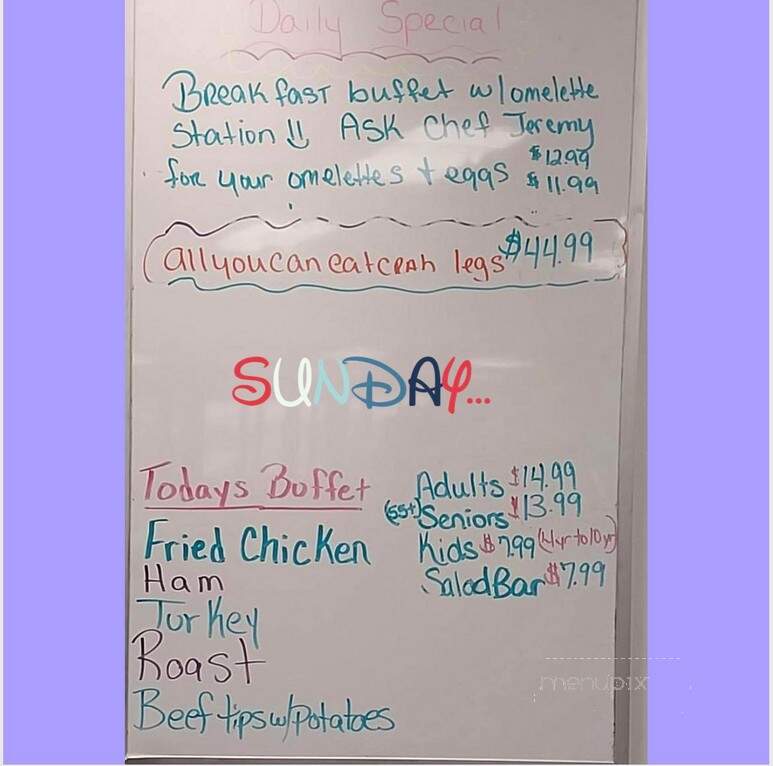 Daily Special
BReakfast buffet w/omelette
Station !! ASK Chef Jeremy
$12.99
for your omelettes + eggs $11.99
all you can eat cRAb legs $44.99
SUNDAY...
Todays Buffet
Adults $14.99
(55+) Seniors $13.99
Fried Chicken
Kids $7.99 (4yr to 10yr)
Ham
Salad Bar $7.99
Turkey
Roast
Beef tips w/Potatoes
menupix